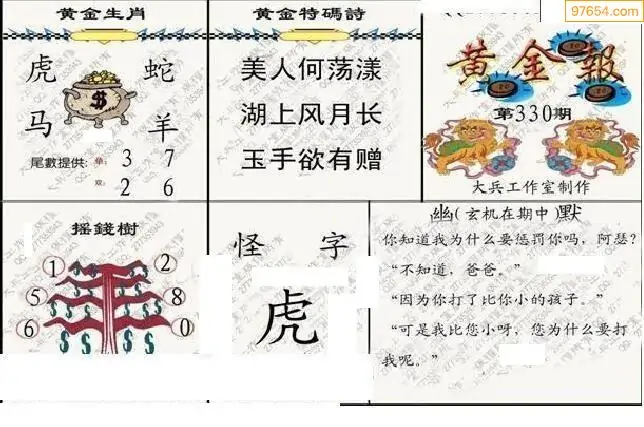 97654.com
黄金生肖
虎 蛇
马 羊
尾數提供: 单: 3 7
双: 2 6
黄金特碼詩
美人何荡漾
湖上风月长
玉手欲有赠
黄金報
第330期
大兵工作室制作
摇錢樹
1 2
5 8
6 0
怪 字
虎
幽(玄机在期中)默
你知道我为什么要惩罚你吗，阿瑟？
“不知道，爸爸。”
“因为你打了比你小的孩子。”
“可是我比您小呀，您为什么要打
我呢。”